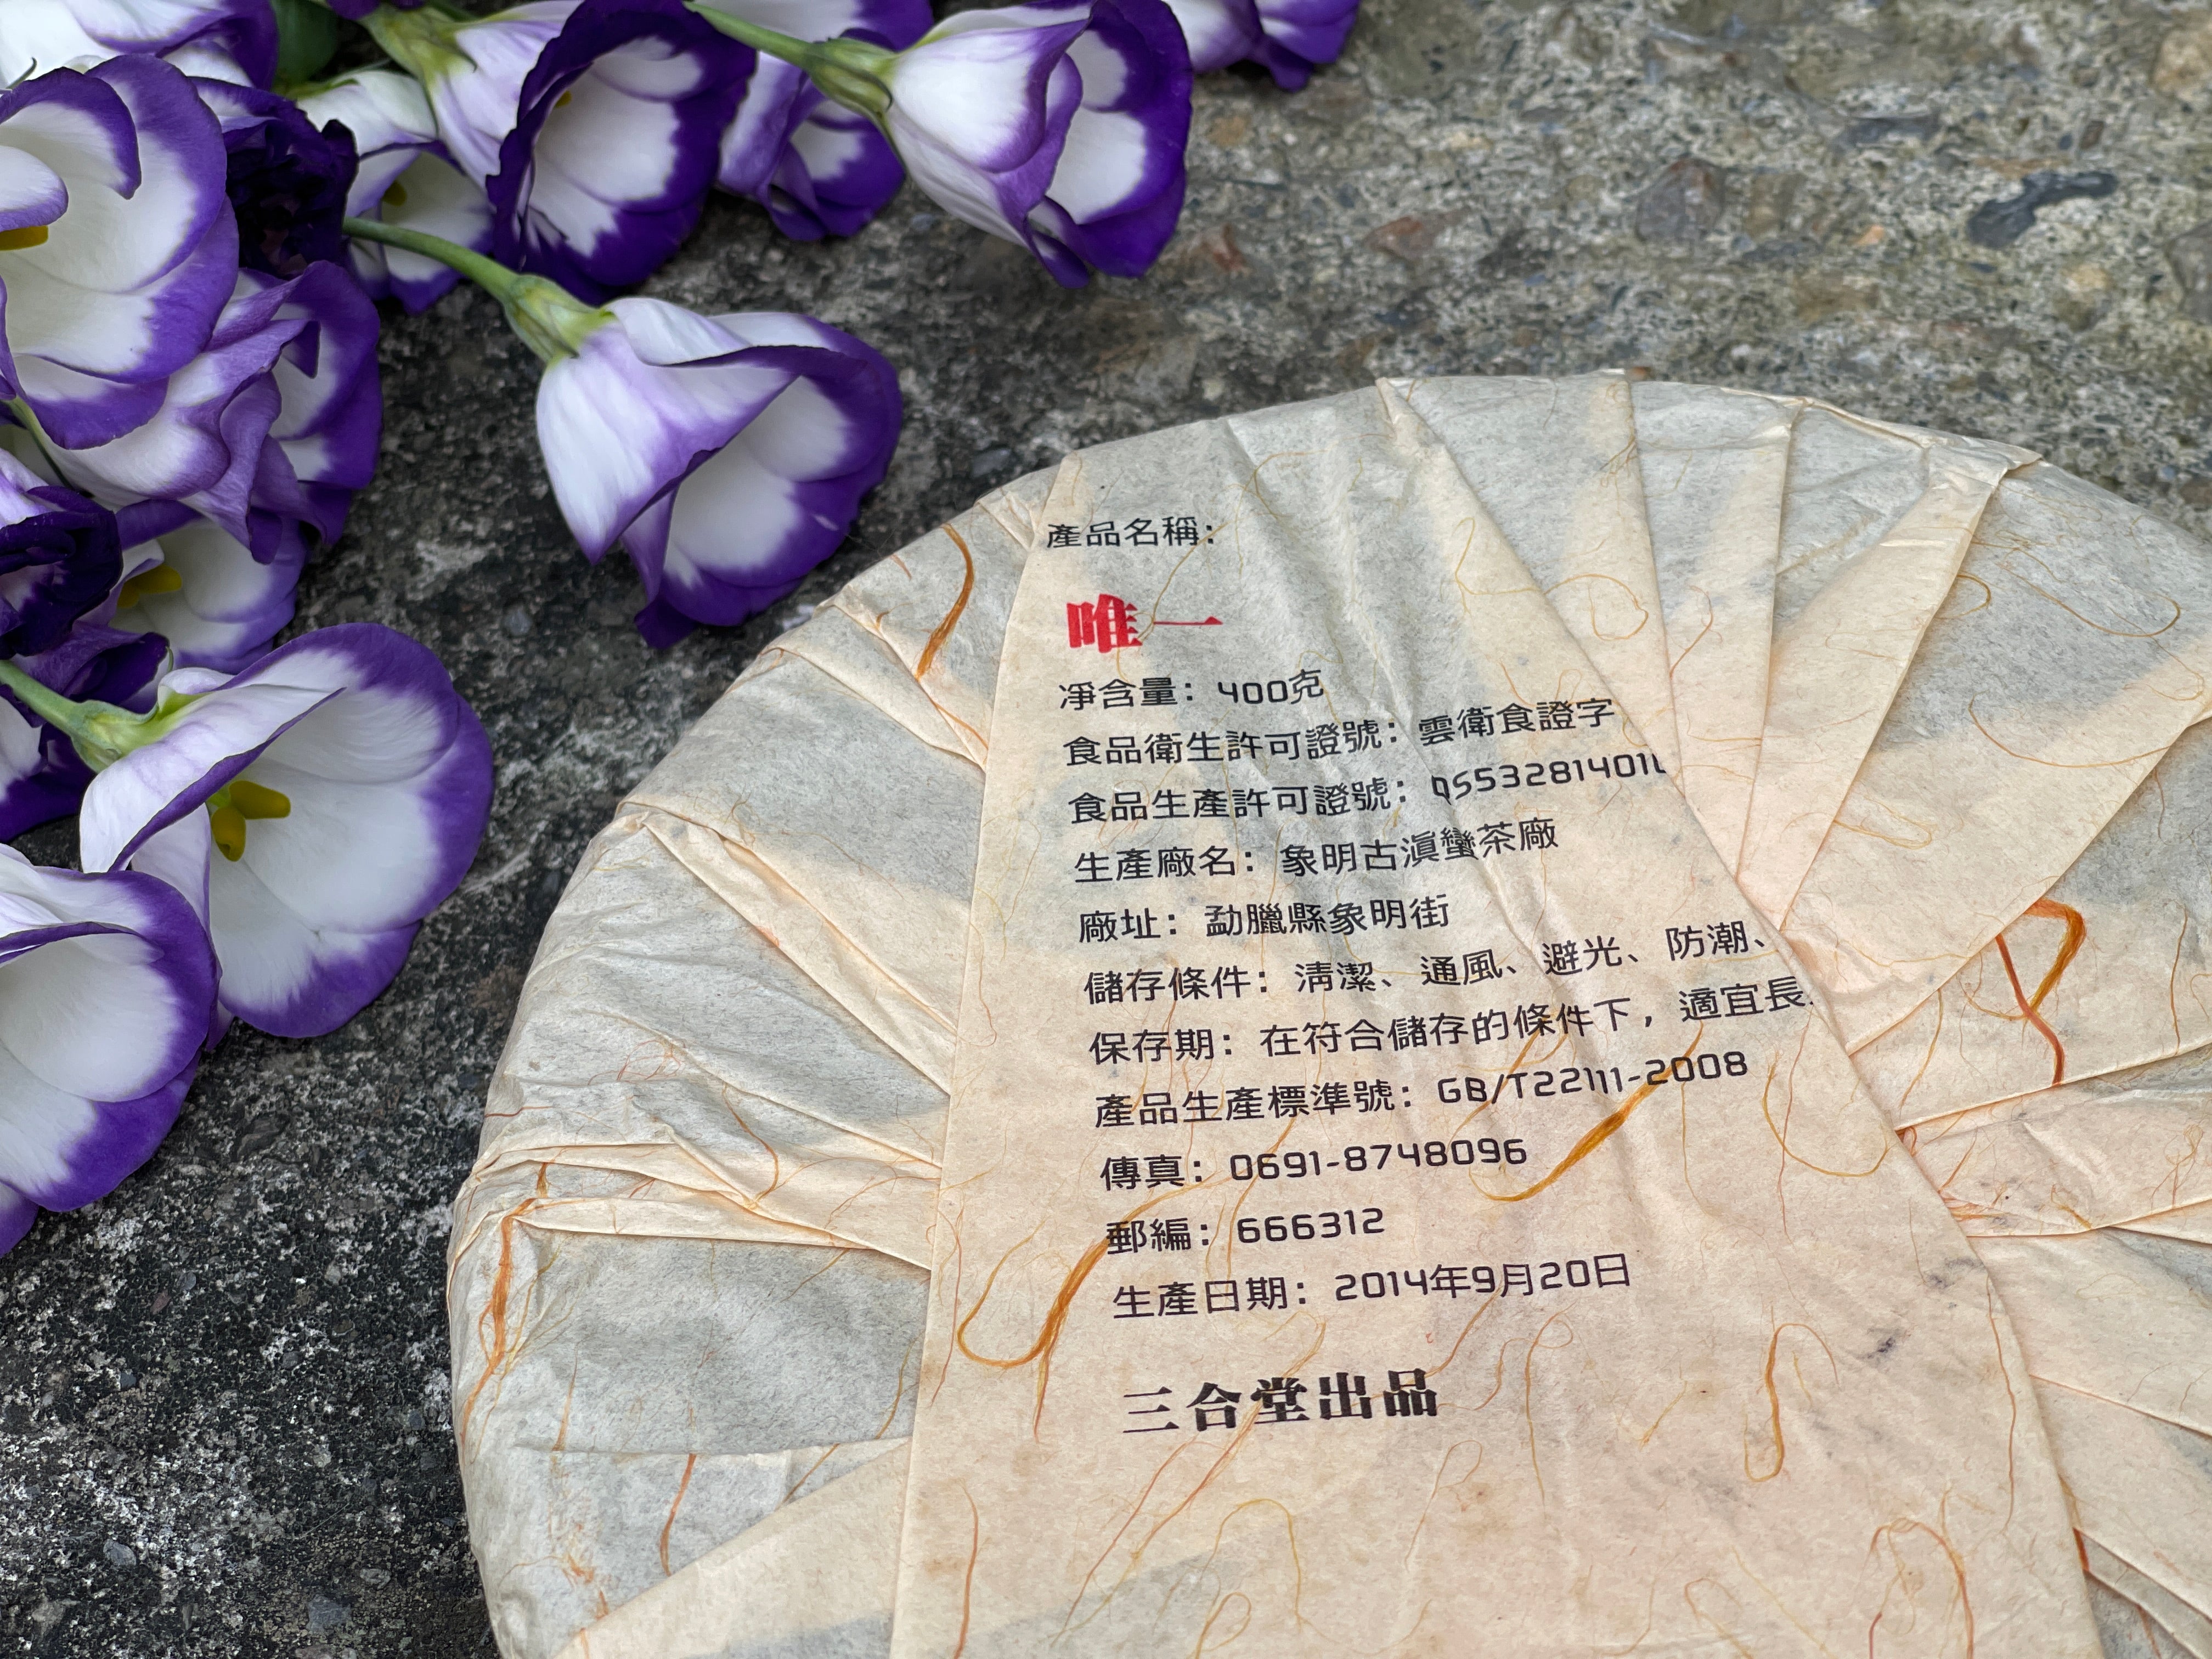 產品名稱：
唯一
凈含量：400克
食品衛生許可證號：雲衛食證字
食品生產許可證號：QS532814010
生產廠名：象明古滇蠻茶廠
廠址：勐臘縣象明街
儲存條件：清潔、通風、避光、防潮、
保存期：在符合儲存的條件下，適宜長
產品生產標準號：GB/T22111-2008
傳真：0691-8748096
郵編：666312
生產日期：2014年9月20日
三合堂出品